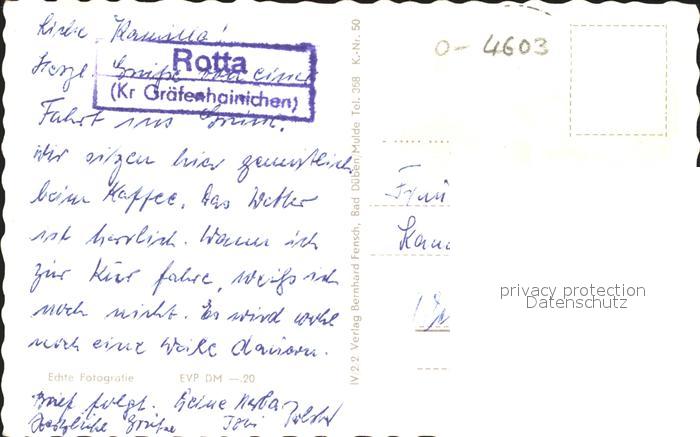 Liebe Kamilla!
Rotta
(Kr Gräfenhainichen)
Herzl. Grüße von einer
Fahrt ins Grüne.
Wir sitzen hier gemütlich
beim Kaffee. Das Wetter
ist herrlich. Wann ich
zur Kur fahre, weiß ich
noch nicht. Es wird wohl
noch eine Weile dauern.
Echte Fotografie EVP DM —.20
Brief folgt. Deine
Herzliche Grüße
IV 2 2 Verlag Bernhard Fensch, Bad Düben/Mulde Tel. 358 K.-Nr. 50
0-4603
privacy protection
Datenschutz